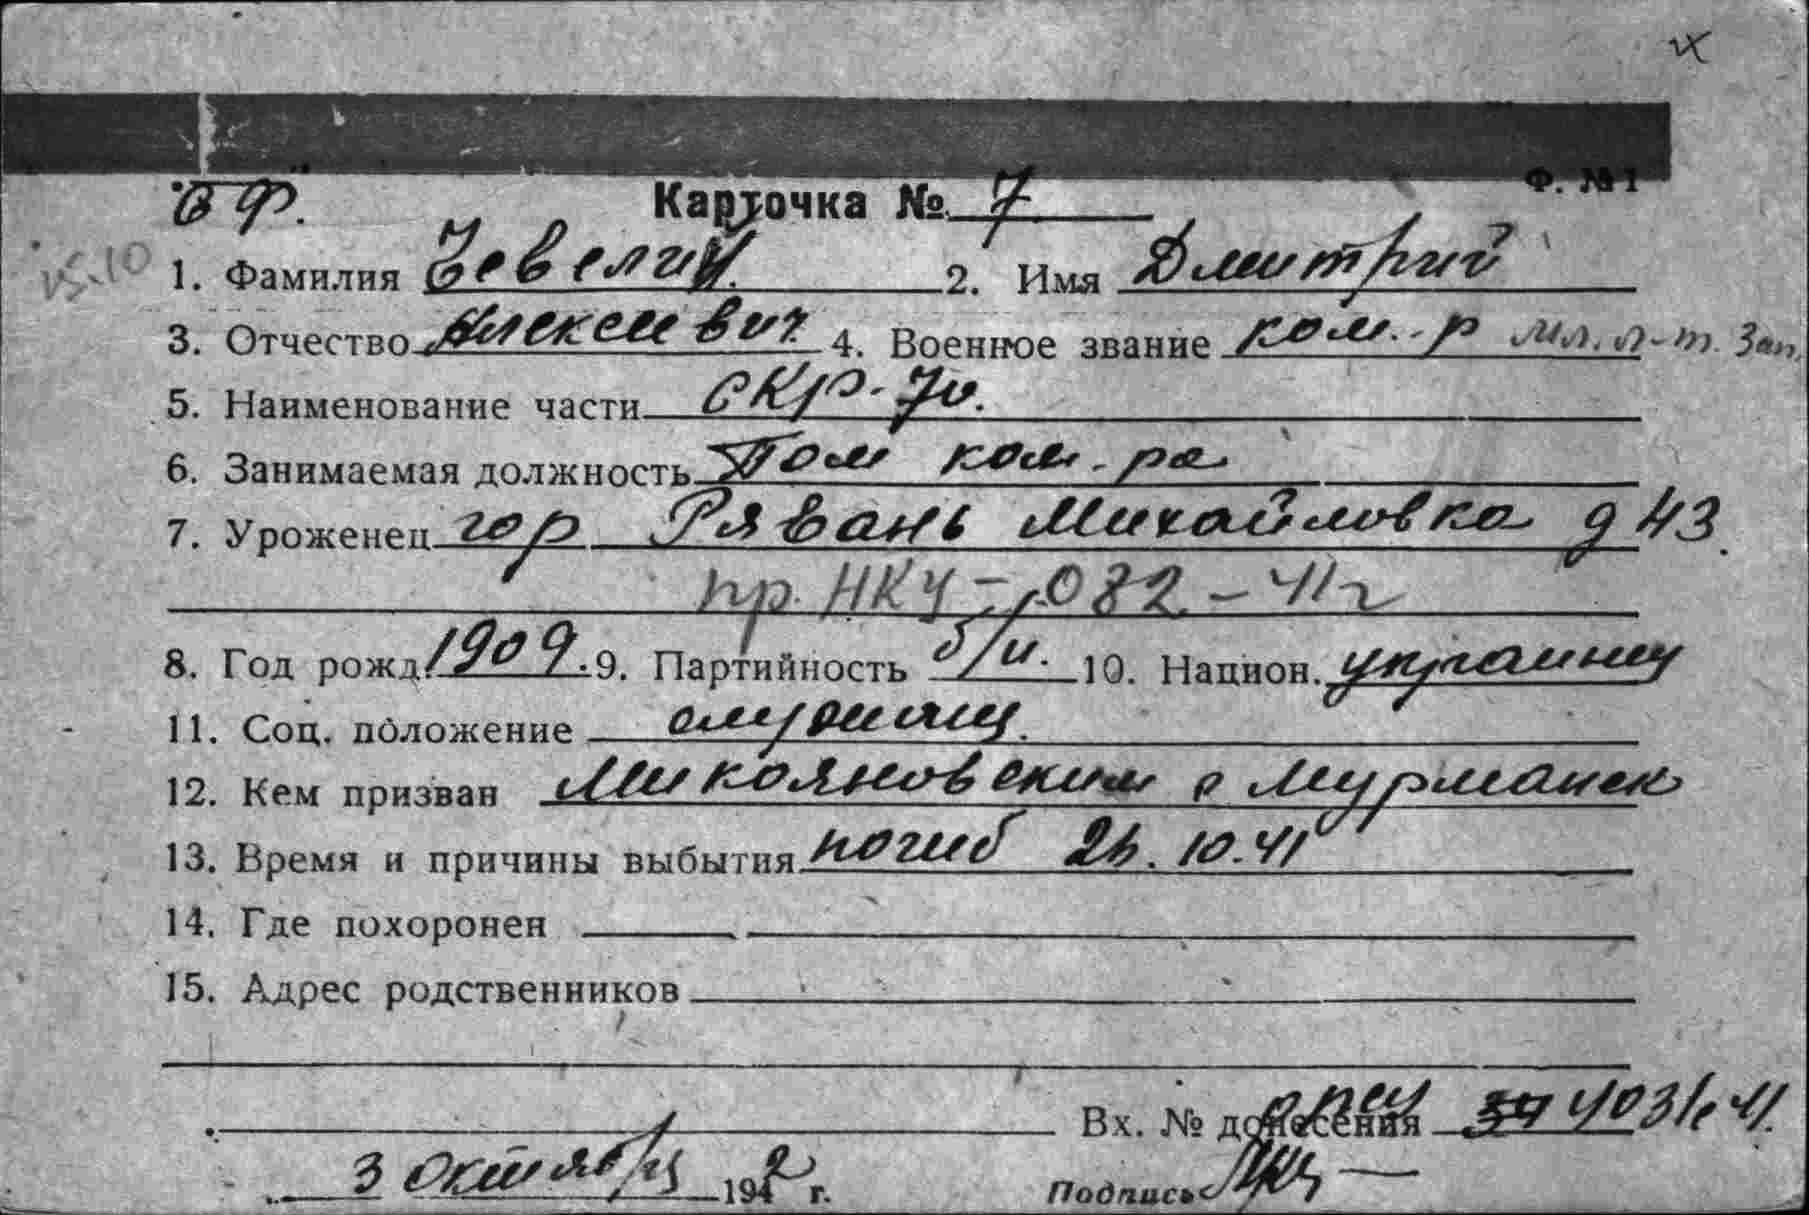 Ф. № 1
СФ. Карточка № 7
1. Фамилия Чевелий. 2. Имя Дмитрий
3. Отчество Алексеевич 4. Военное звание ком.-р мл. л-т. Зап.
5. Наименование части СКР-70.
6. Занимаемая должность Пом ком.-ра
7. Уроженец гор Рязань Михайловка д 43.
пр. НКУ-082-41г
8. Год рожд. 1909. 9. Партийность б/п. 10. Национ. украинец
11. Соц. положение служащ.
12. Кем призван Микояновским г Мурманск
13. Время и причины выбытия погиб 26.10.41
14. Где похоронен
15. Адрес родственников
Вх. № донесения 4031с 41.
3 октября 1942 г. Подпись